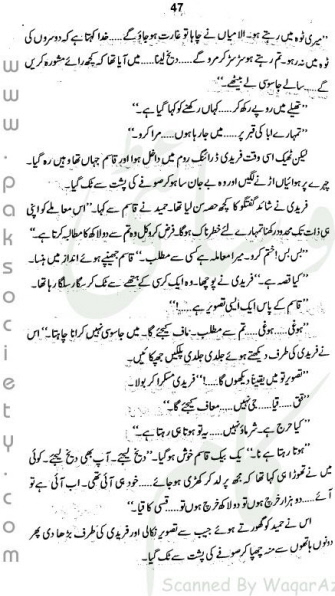 47
"میری ٹوہ میں رہتے ہو۔ الا میاں نے چاہا تو غارت ہو جاؤ گے.....خدا کہتا ہے کہ دوسروں کی
ٹوہ میں نہ رہو۔ تم رہتے ہو سڑ سڑ کر مرو گے.....دیخ لینا.....میں آیا تھا کہ کچھ رائے مشورہ کریں
گے.....سالے جاسوسی لے بیٹھے۔"
"تھیلے میں روپے رکھ کر.....کہاں رکھنے کو کہا گیا ہے۔"
"تمہارے ابا کی قبر پر.....میں جا رہا ہوں.....مرا کرو۔"
لیکن ٹھیک اسی وقت فریدی ڈرائنگ روم میں داخل ہوا اور قاسم جہاں تھا وہیں رہ گیا۔
چہرے پر ہوائیاں اڑنے لگیں اور وہ بے جان سا ہو کر صوفے کی پشت سے ٹک گیا۔
فریدی نے شائد گفتگو کا کچھ حصہ سن لیا تھا۔ حمید نے قاسم سے کہا۔ "اس معاملے کو اپنی
ہی ذات تک محدود رکھنا تمہارے لئے خطرناک ہوگا۔ فرض کرو کل وہ تم سے دو لاکھ کا مطالبہ کرتا ہے۔"
"بس بس! ختم کرو۔ میرا معاملہ ہے کسی سے مطلب۔" قاسم جھینپے ہوئے انداز میں ہنسا۔
"کیا قصہ ہے۔" فریدی نے پوچھا۔ وہ ایک کرسی کے ہتھے سے ٹک کر سگار سلگا رہا تھا۔
"قاسم کے پاس ایک ایسی تصویر ہے.....!"
"ہوغی.....ہوغی.....تم سے مطلب۔ ماف کیجئے گا۔ میں جاسوسی نہیں کرانا چاہتا۔" اس
نے فریدی کی طرف دیکھتے ہوئے جلدی جلدی پلکیں جھپکائیں۔
"تصویر تو میں یقیناً دیکھوں گا.....!" فریدی مسکرا کر بولا۔
"قق.....قیا.....جی نہیں.....معاف کیجئے گا۔"
"کیا حرج ہے۔ شرماؤ نہیں.....یہ تو ہوتا ہی رہتا ہے۔"
"ہوتا رہتا ہے نا۔" یک بیک قاسم خوش ہو گیا۔ "دیخ لیجئے۔ آپ بھی دیخ لیجئے۔ کوئی
میں نے تھوڑا ہی کہا تھا کہ مجھ پر لد کر کھڑی ہو جائے.....خود ہی آئی تھی۔ اب آئی ہے تو
آئے.....دو ہزار خرچ ہوں تو دو لاکھ خرچ ہوں تو.....قسی کا قیا۔"
اس نے حمید کو گھورتے ہوئے جیب سے تصویر نکالی اور فریدی کی طرف بڑھا دی پھر
دونوں ہاتھوں سے منہ چھپا کر صوفے کی پشت سے ٹک گیا۔
www.paksociety.com
Scanned By WaqarAz